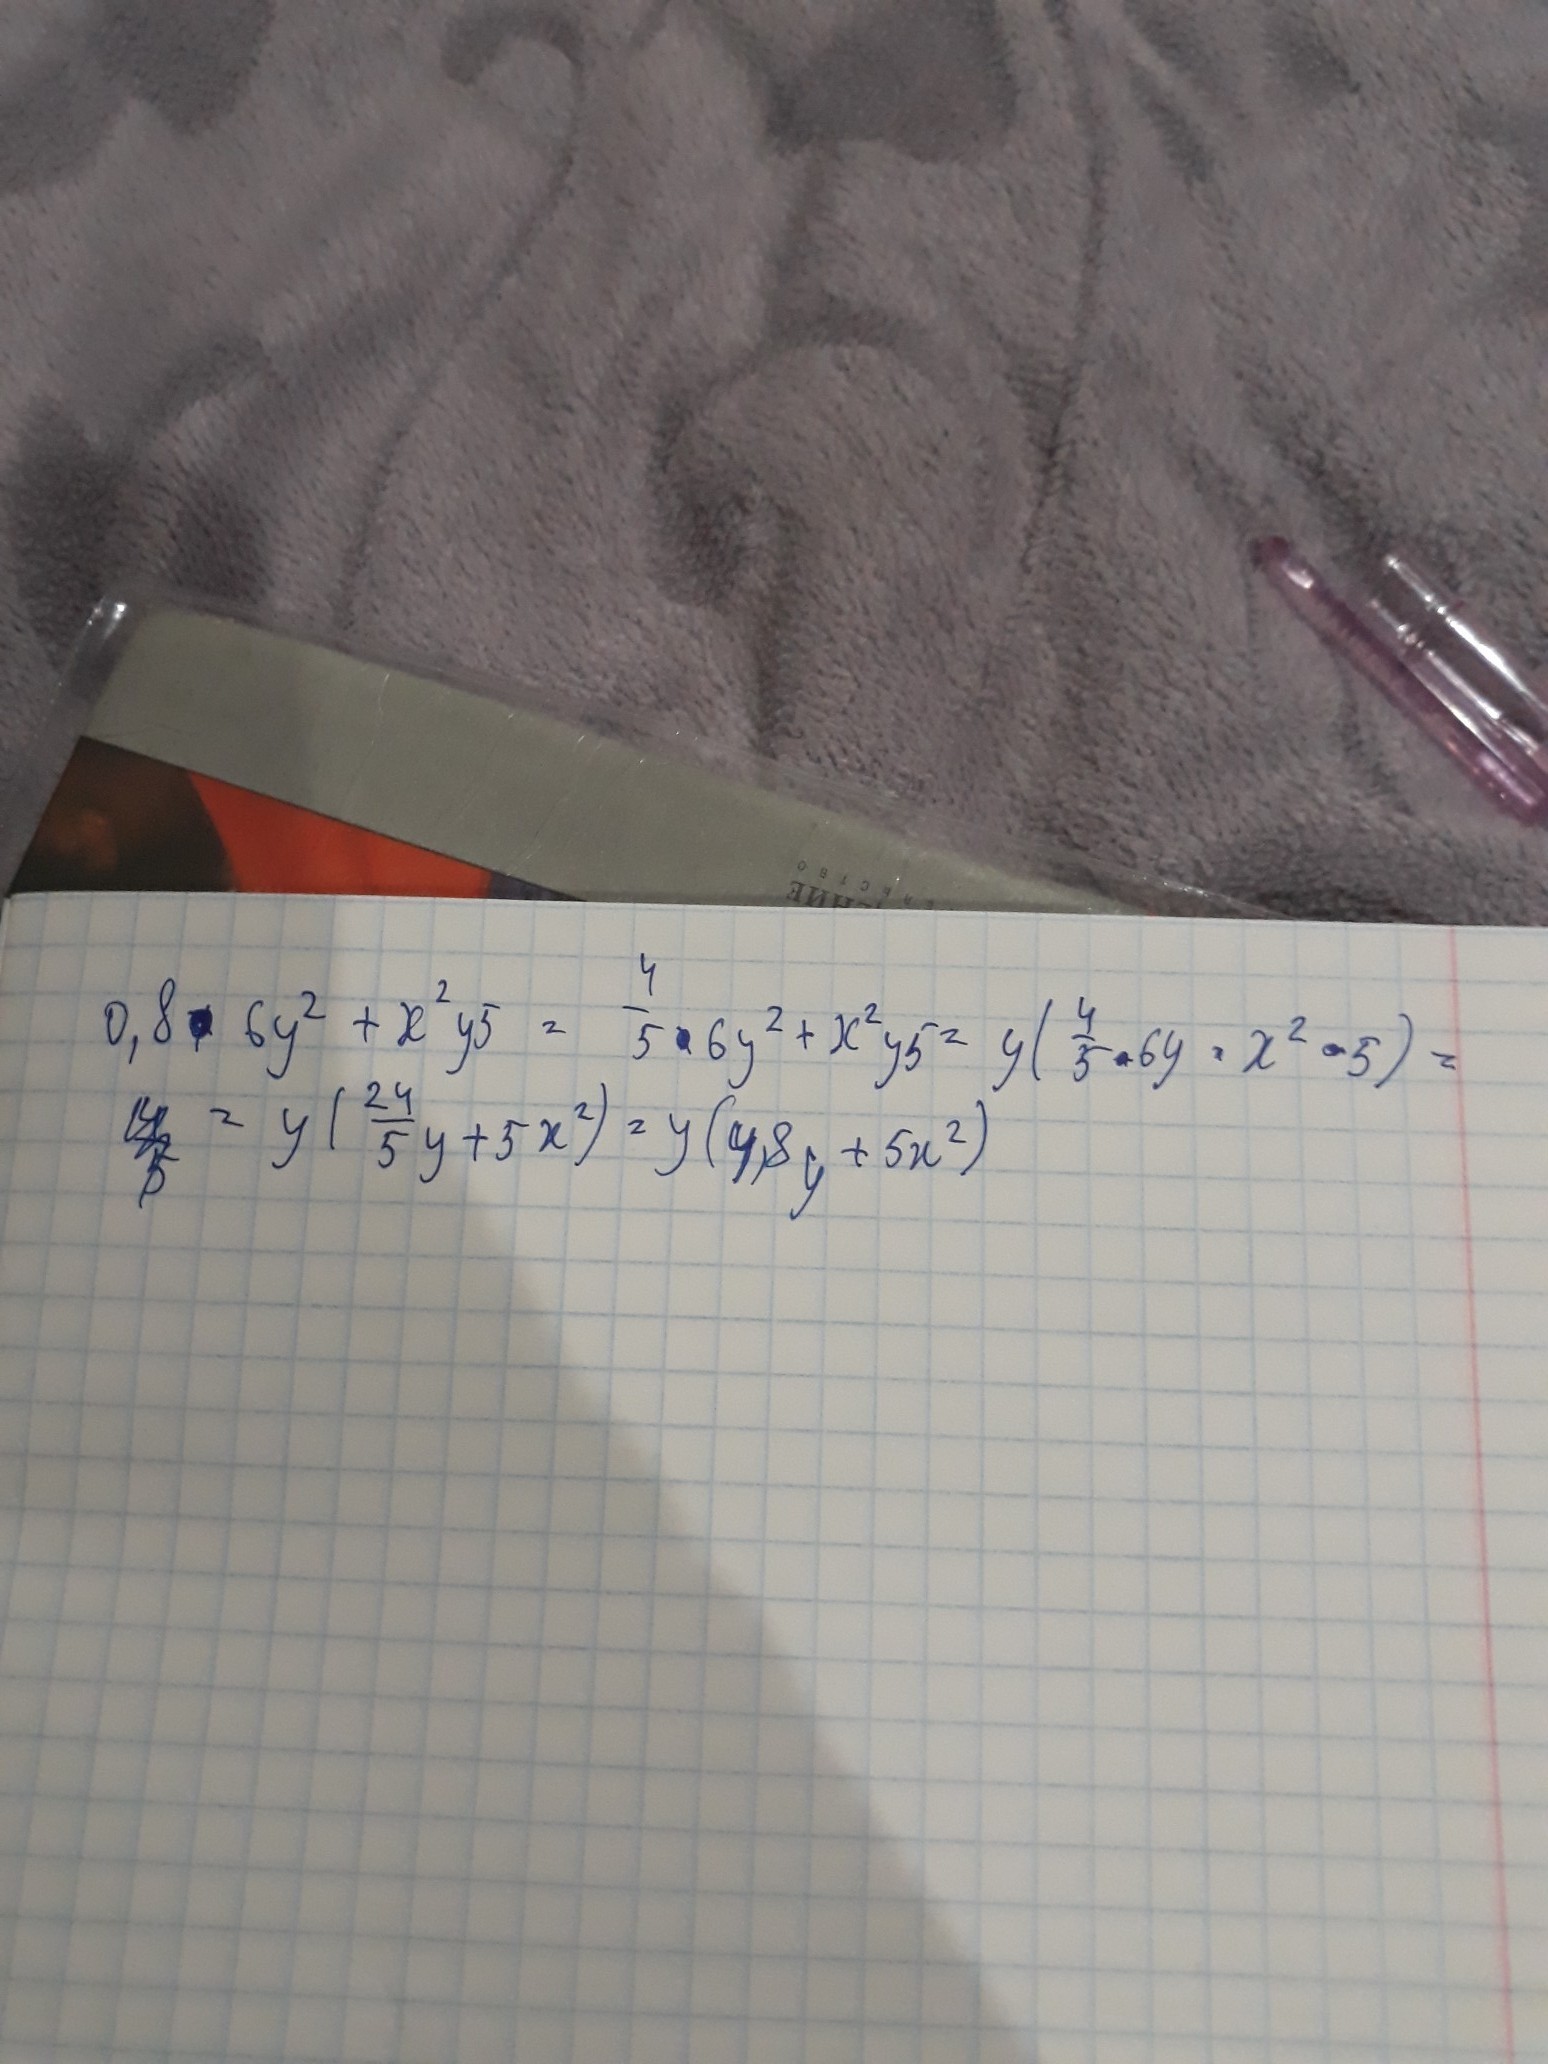 ЕНИЕ
0,8 • 6y² + x²y5 = 4/5 • 6y² + x²y5 = y(4/5 • 6y • x² • 5) =
= y(24/5 y + 5x²) = y(4,8y + 5x²)